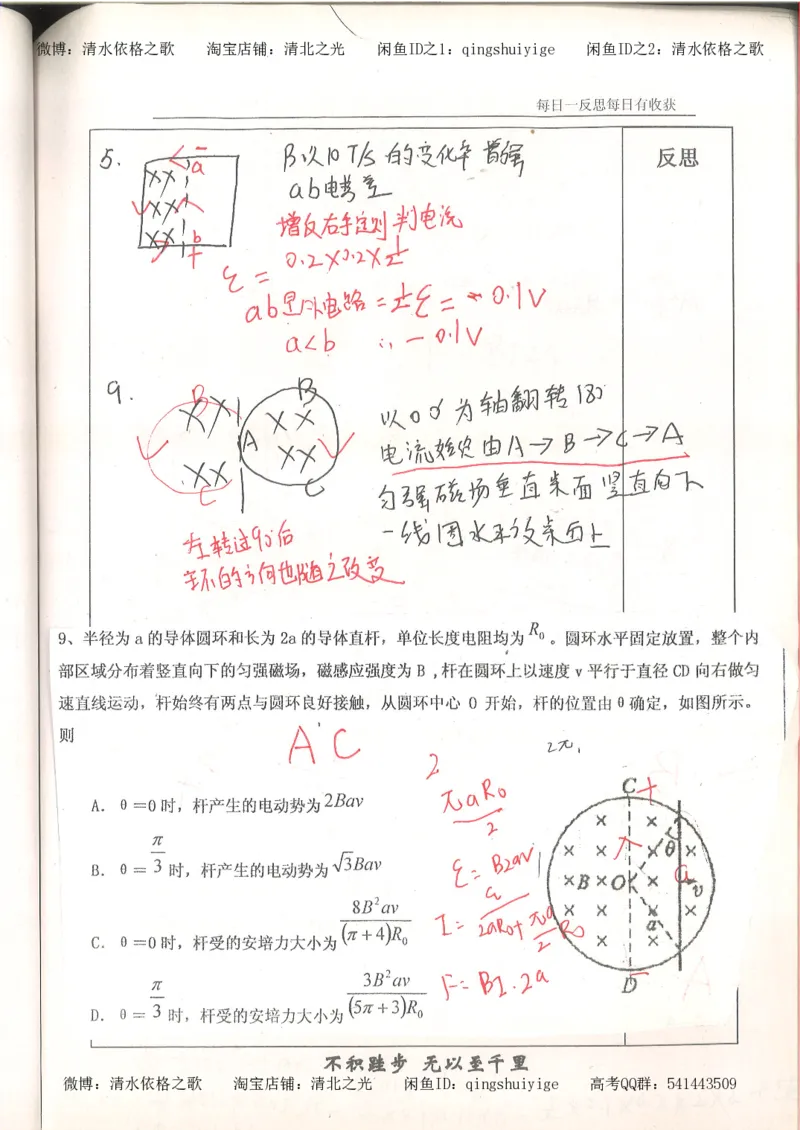 微博：清水依格之歌 淘宝店铺：清北之光 闲鱼ID之1：qingshuiyige 闲鱼ID之2：清水依格之歌
每日一反思每日有收获
反思
5. B以10T/s的变化率增强
ab电势差
增反右手定则判电流
ε = 0.2×0.2×½
ab是外电路 = ½ε = 0.1V
a<b ∴ -0.1V
a
b
9. 以OO'为轴翻转180
电流始终由A→B→C→A
匀强磁场垂直桌面竖直向下
一线圈水平放桌面上
B
B
A
C
C
左转过90后
环的方向也随之改变
9、半径为 a 的导体圆环和长为 2a 的导体直杆，单位长度电阻均为 R₀ 。圆环水平固定放置，整个内
部区域分布着竖直向下的匀强磁场，磁感应强度为 B ,杆在圆环上以速度 v 平行于直径 CD 向右做匀
速直线运动，杆始终有两点与圆环良好接触，从圆环中心 O 开始，杆的位置由 θ 确定，如图所示。
则
AC
2π
πaR₀/2
A. θ＝0 时，杆产生的电动势为 2Bav
B. θ＝ π/3 时，杆产生的电动势为 √3Bav
ε = B2av
C. θ＝0 时，杆受的安培力大小为 8B²av/(π+4)R₀
I = 2aR₀+ πa/2 R₀
F = BI·2a
D. θ＝ π/3 时，杆受的安培力大小为 3B²av/(5π+3)R₀
C
θ
B
O
v
a
D
不积跬步 无以至千里
微博：清水依格之歌 淘宝店铺：清北之光 闲鱼ID：qingshuiyige 高考QQ群：541443509